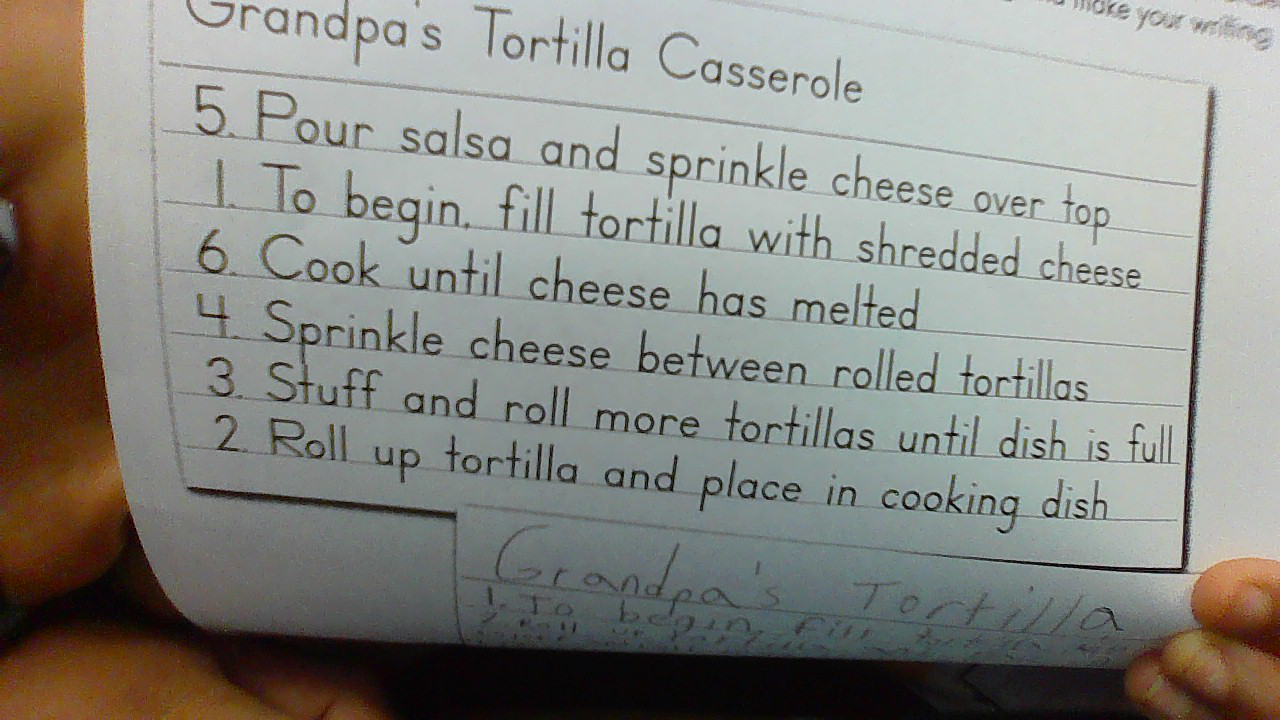 make your writing
Grandpa's Tortilla Casserole
5. Pour salsa and sprinkle cheese over top
1. To begin, fill tortilla with shredded cheese
6. Cook until cheese has melted
4. Sprinkle cheese between rolled tortillas
3. Stuff and roll more tortillas until dish is full
2. Roll up tortilla and place in cooking dish
Grandpa's Tortilla
1. To begin, fill
2. Roll up